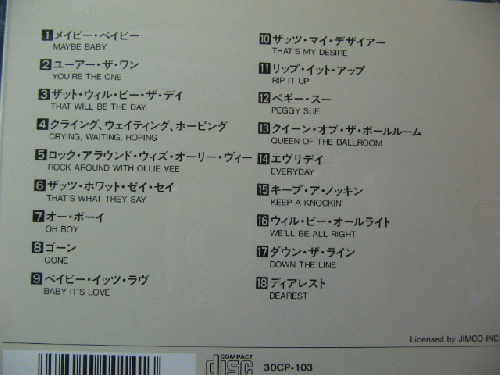 1 メイビー・ベイビー
MAYBE BABY
2 ユーアー・ザ・ワン
YOU'RE THE ONE
3 ザット・ウィル・ビー・ザ・デイ
THAT WILL BE THE DAY
4 クライング、ウェイティング、ホーピング
CRYING, WAITING, HOPING
5 ロック・アラウンド・ウィズ・オーリー・ヴィー
ROCK AROUND WITH OLLIE VEE
6 ザッツ・ホワット・ゼイ・セイ
THAT'S WHAT THEY SAY
7 オー・ボーイ
OH BOY
8 ゴーン
GONE
9 ベイビー・イッツ・ラヴ
BABY IT'S LOVE
10 ザッツ・マイ・デザイアー
THAT'S MY DESIRE
11 リップ・イット・アップ
RIP IT UP
12 ペギー・スー
PEGGY SUE
13 クイーン・オブ・ザ・ボールルーム
QUEEN OF THE BALLROOM
14 エヴリデイ
EVERYDAY
15 キープ・ア・ノッキン
KEEP A KNOCKIN'
16 ウィル・ビー・オールライト
WE'LL BE ALL RIGHT
17 ダウン・ザ・ライン
DOWN THE LINE
18 ディアレスト
DEAREST
Licensed by JIMCO INC
COMPACT
disc
3DCP-103